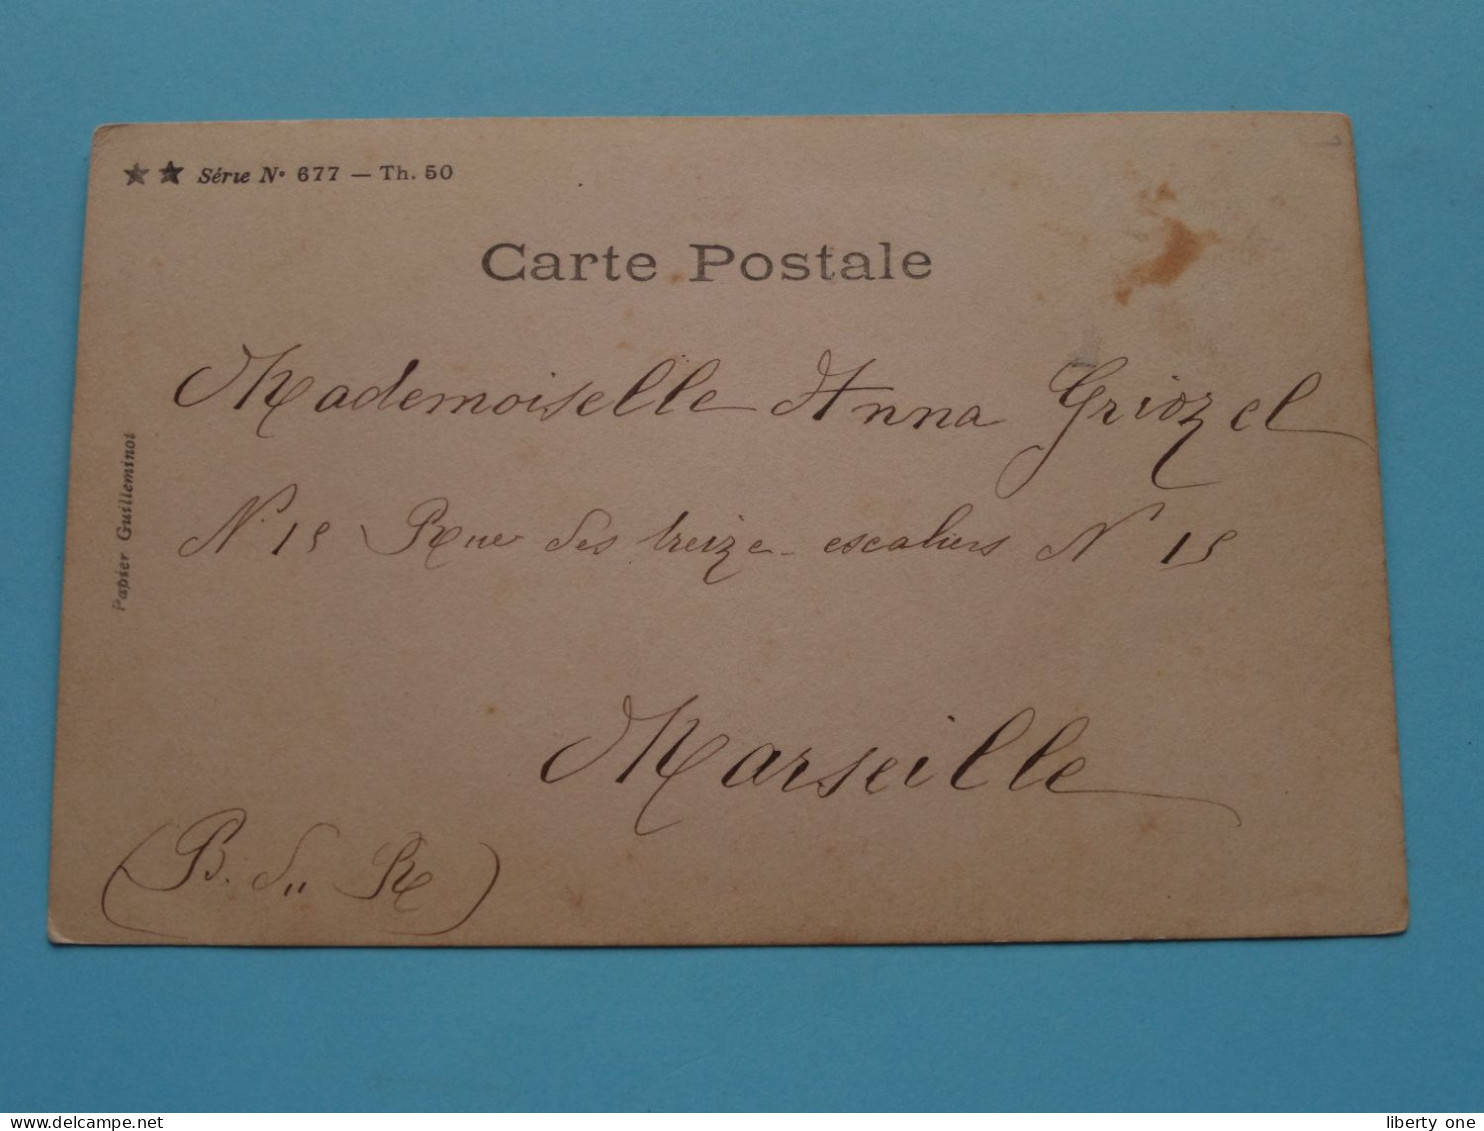 ★ ★ Série Nº 677 — Th. 50
Carte Postale
Mademoiselle Anna Griozel
N. 15 Rue des treize escaliers N 15
Marseille
(B. du R)
Papier Guilleminot
www.delcampe.net
liberty one